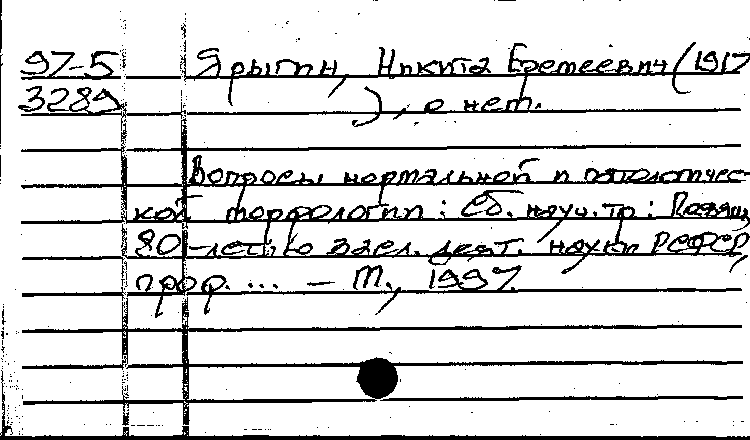 97-5 Ярыгин, Никита Еремеевич (1917
3289 ), о нем.
Вопросы нормальной и патологичес-
кой морфологии: Сб. науч. тр.: Посвящ.
80-летию засл. деят. науки РСФСР,
проф. ... - М., 1997.